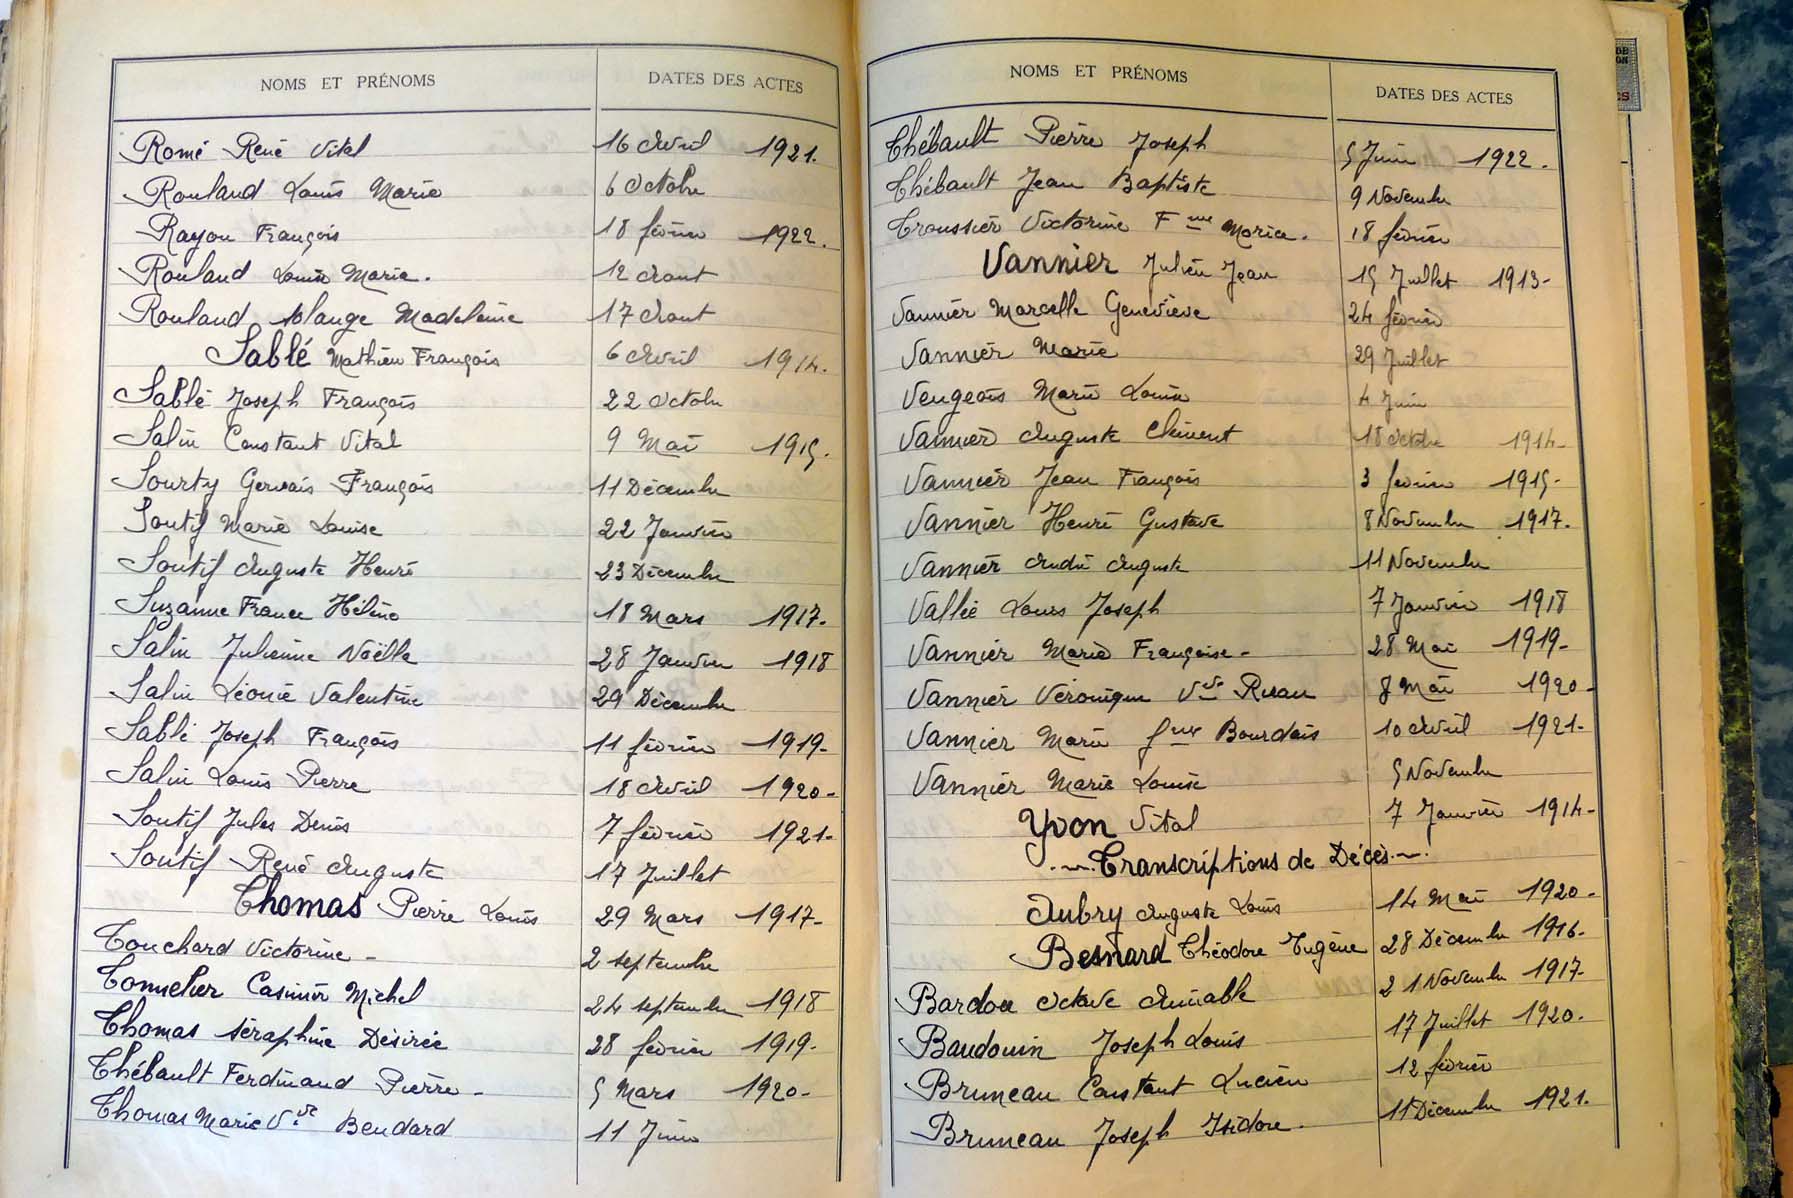 NOMS ET PRÉNOMS DATES DES ACTES
Romé René Vital 16 Avril 1921.
Rouland Louis Marie 6 Octobre
Rayon François 18 février 1922.
Rouland Louis Marie. 12 Aout
Rouland Solange Madeleine 17 Aout
Sablé Mathieu François 6 Avril 1914.
Sablé Joseph François 22 Octobre
Salin Constant Vital 9 Mai 1915.
Sourty Gervais François 11 Décembre
Soutif Marie Louise 22 Janvier
Soutif Auguste Henri 23 Décembre
Suzanne France Hélène 18 Mars 1917.
Salin Julienne Noëlle 28 Janvier 1918
Salin Léonie Valentine 29 Décembre
Sablé Joseph François 11 février 1919.
Salin Louis Pierre 18 Avril 1920.
Soutif Jules Denis 7 février 1921.
Soutif René Auguste 17 Juillet
Thomas Pierre Louis 29 Mars 1917.
Touchard Victorine - 2 septembre
Tonnelier Casimir Michel 24 septembre 1918
Thomas Séraphine Désirée 28 février 1919.
Thébault Ferdinand Pierre - 5 Mars 1920.
Thomas Marie Vve Beudard 11 Juin
NOMS ET PRÉNOMS DATES DES ACTES
Thébault Pierre Joseph 5 Juin 1922.
Thébault Jean Baptiste 9 Novembre
Troussier Victorine Fme Morice. 18 février
Vannier Julien Jean 15 Juillet 1913.
Vannier Marcelle Geneviève 24 février
Vannier Marie 29 Juillet
Veugeois Marie Louise 4 Juin
Vannier Auguste Clément 18 Octobre 1914.
Vannier Jean François 3 février 1915.
Vannier Henri Gustave 8 Novembre 1917.
Vannier André Auguste 11 Novembre
Vallée Louis Joseph 7 Janvier 1918
Vannier Marie Françoise - 28 Mai 1919.
Vannier Véronique Vve 8 Mai 1920.
Vannier Marie fme Bourdais 10 Avril 1921.
Vannier Marie Louise 5 Novembre
Yvon Vital 7 Janvier 1914.
Transcriptions de Décès.
Aubry Auguste Louis 14 Mai 1920.
Besnard Théodore Eugène 28 Décembre 1916.
Bardou Octave Aimable 21 Novembre 1917.
Baudouin Joseph Louis 17 Juillet 1920.
Bruneau Constant Lucien 12 février
Bruneau Joseph Isidore. 11 Décembre 1921.